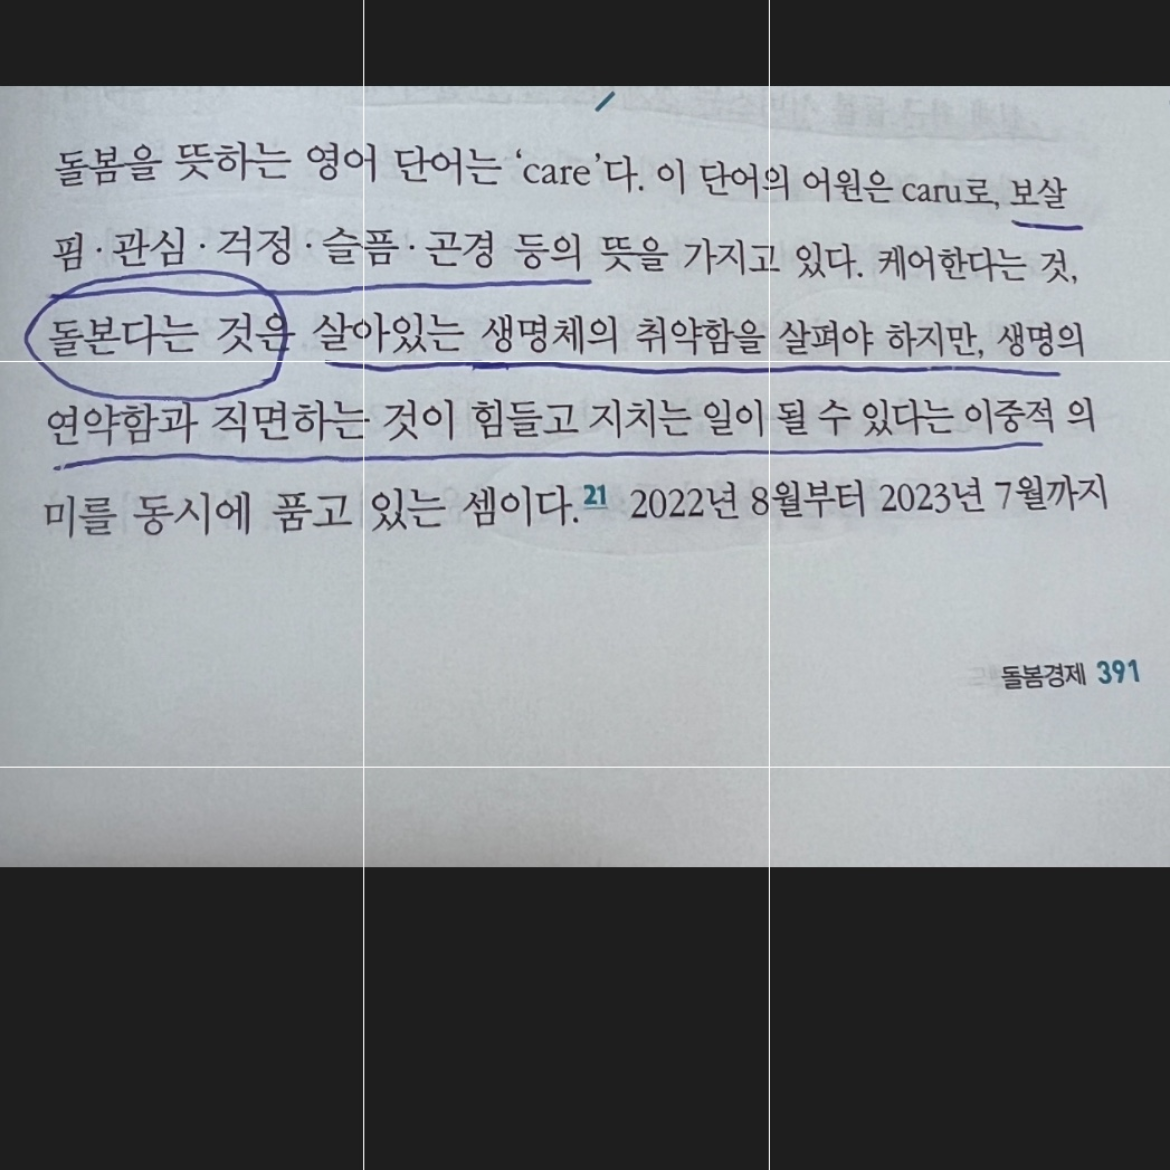 돌봄을 뜻하는 영어 단어는 ‘care’다. 이 단어의 어원은 caru로, 보살
핌·관심·걱정·슬픔·곤경 등의 뜻을 가지고 있다. 케어한다는 것,
돌본다는 것은 살아있는 생명체의 취약함을 살펴야 하지만, 생명의
연약함과 직면하는 것이 힘들고 지치는 일이 될 수 있다는 이중적 의
미를 동시에 품고 있는 셈이다.21 2022년 8월부터 2023년 7월까지
돌봄경제 391